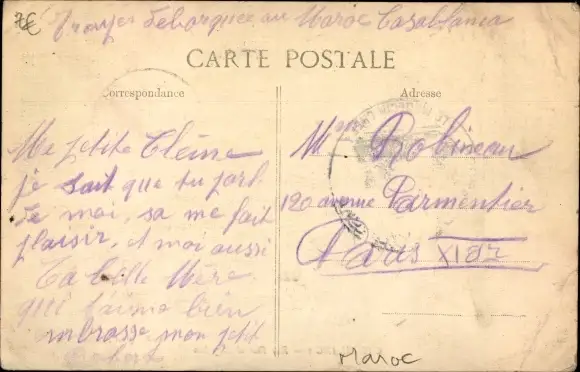 7€
Troupes débarquée au Maroc Casablanca
CARTE POSTALE
Correspondance
Adresse
Ma petite Cleine
je sait que tu parl
de moi, sa me fait
plaisir, et moi aussi
Ta belle Mère
qui t'aime bien
mbrasse mon petit
Robert
Mme Robineau
120 avenue Parmentier
Paris XIar
Maroc